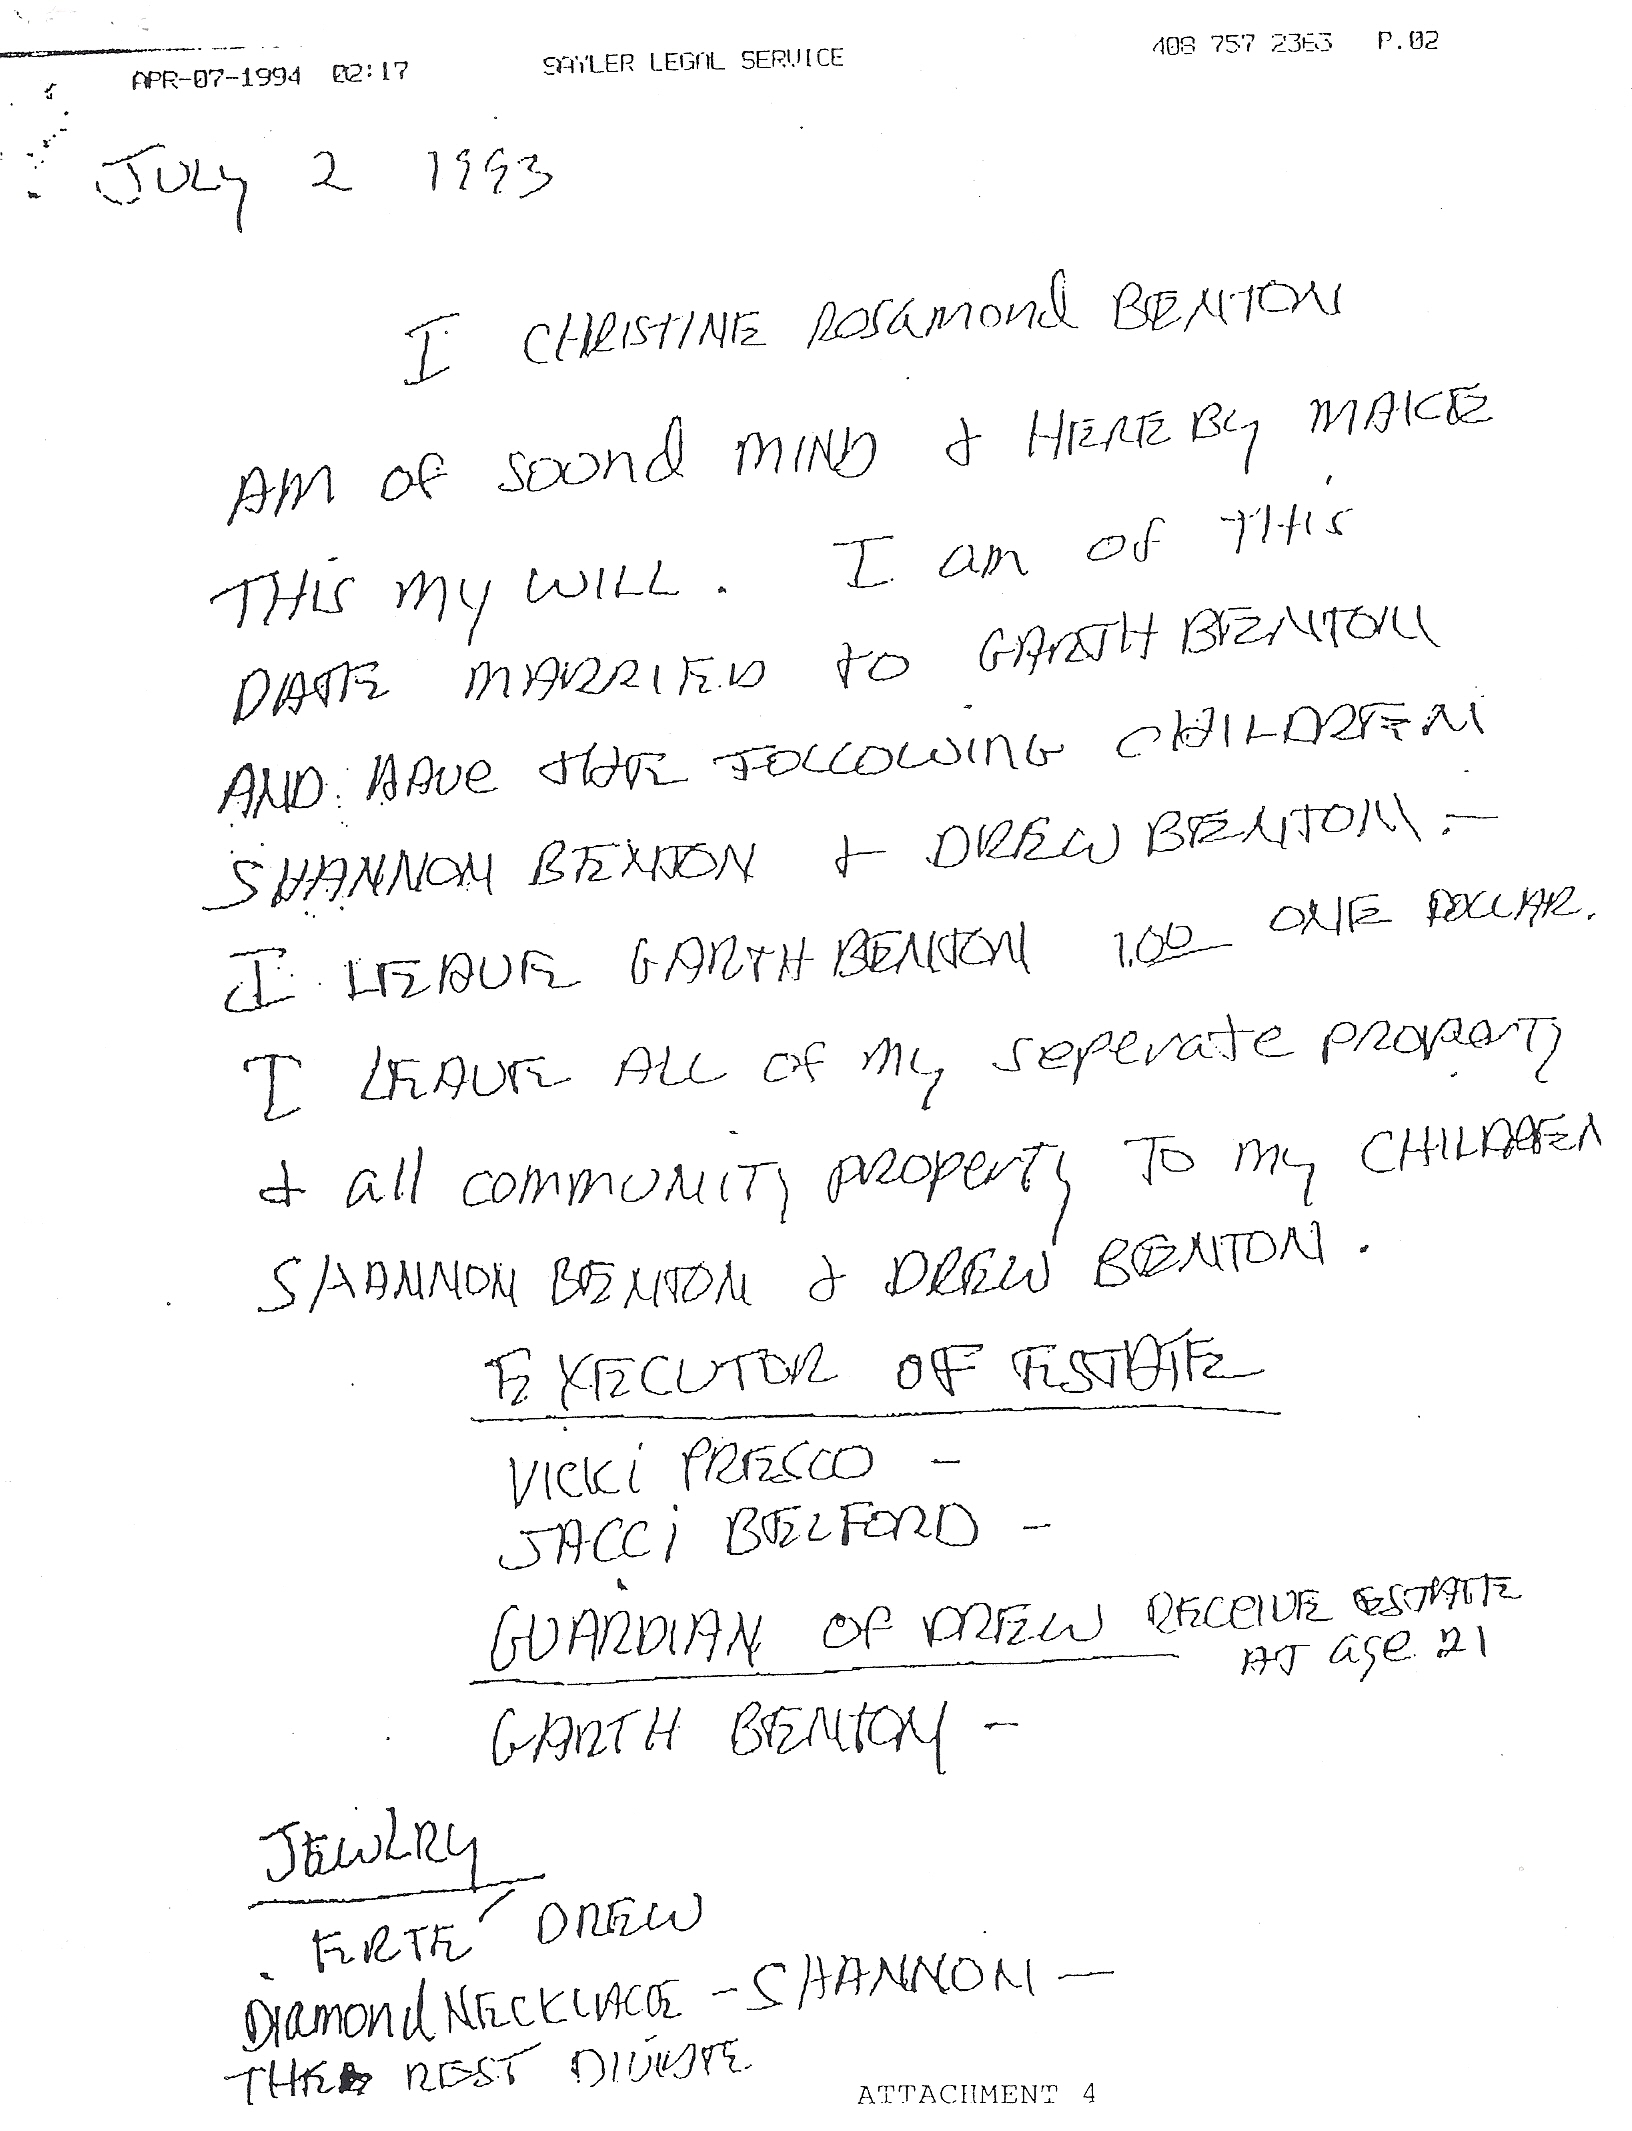 APR-07-1994 02:17 SAYLER LEGAL SERVICE 408 757 2363 P.02
JULY 2 1993
I CHRISTINE ROSAMOND BENTON
AM OF SOUND MIND & HEREBY MAKE
THIS MY WILL. I am OF THIS
DATE MARRIED to GARTH BENTON
AND HAVE THE FOLLOWING CHILDREN
SHANNON BENTON & DREW BENTON.—
I LEAVE GARTH BENTON 1.00 ONE DOLLAR.
I LEAVE ALL OF MY seperate PROPERTY
& all COMMUNITY PROPERTY TO MY CHILDREN
SHANNON BENTON & DREW BENTON.
EXECUTOR OF ESTATE
VICKI PRESCO -
JACCI BELFORD -
GUARDIAN OF DREW RECEIVE ESTATE
AT age 21
GARTH BENTON -
JEWLRY
ERTÉ DREW
DIAMOND NECKLACE - SHANNON —
THE REST DIVIDE
ATTACHMENT 4